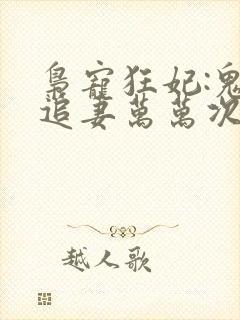 梟寵狂妃:鬼
追妻萬萬次
越人歌